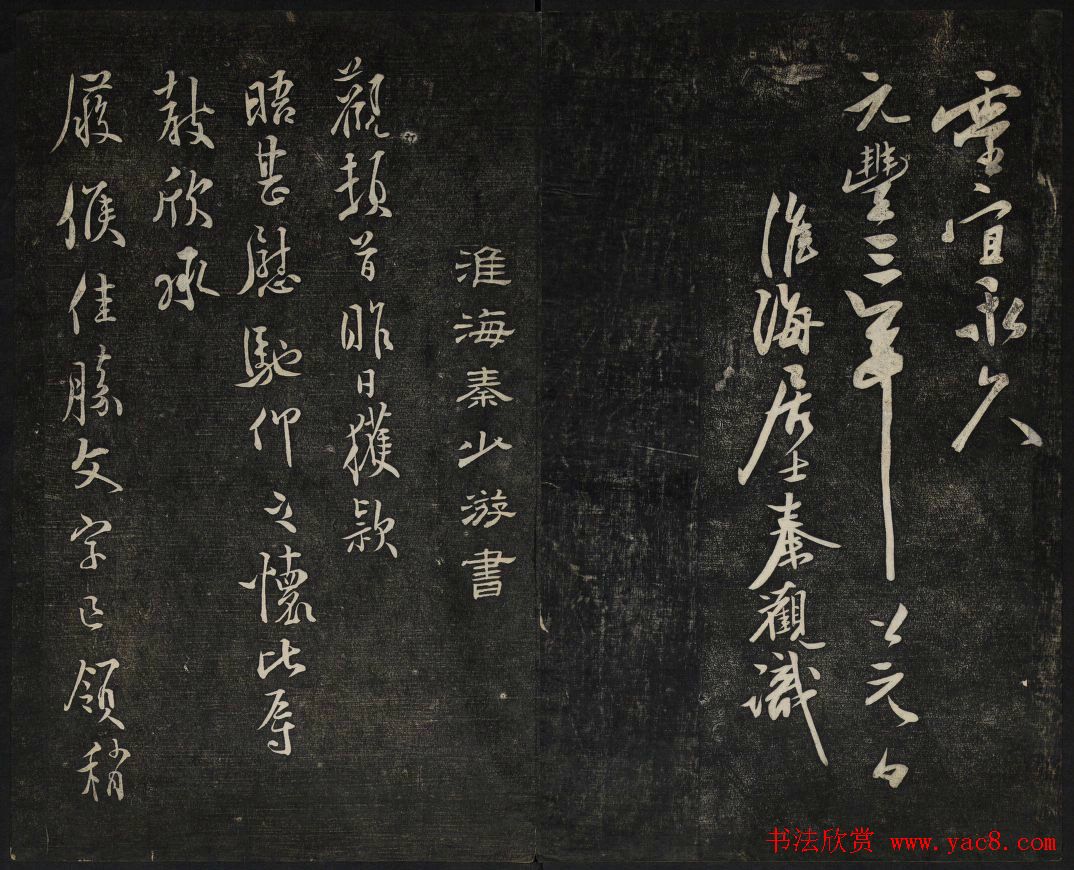 靈宜永久
元豐三年上元日
淮海居士秦觀識
淮海秦少游書
觀頓首昨日獲款
晤甚慰馳仰之懷比辱
教欣承
嚴候佳勝文字已領稍
书法欣赏 www.yac8.com